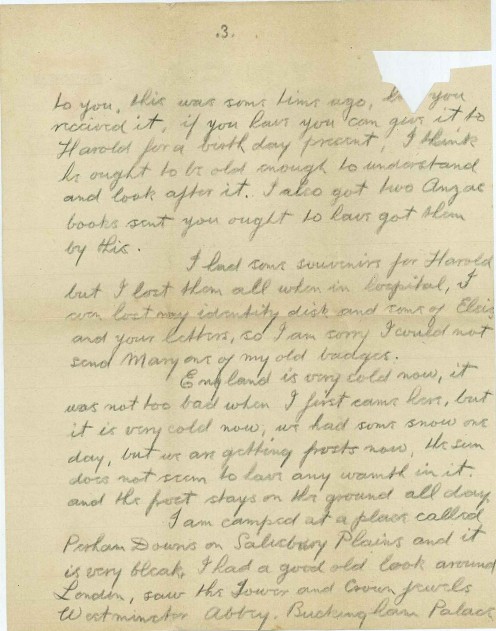 .3.
to you, this was some time ago, you
recieved it, if you have you can give it to
Harold for a birth day present, I think
he ought to be old enough to understand
and look after it. I also got two Anzac
books sent you ought to have got them
by this.
I had some souvenirs for Harold
but I lost them all when in hospital, I
even lost my identity disk and some of Elsie
and your letters, so I am sorry I could not
send Mary one of my old badges.
England is very cold now, it
was not too bad when I first came here, but
it is very cold now, we had some snow one
day, but we are getting frosts now, the sun
does not seem to have any wamth in it.
and the frost stays on the ground all day,
I am camped at a place called
Perham Downs on Salisbury Plains and it
is very bleak. I had a good old look around
London, saw the Tower and Crown Jewels
Westminster Abbey. Buckingham Palace